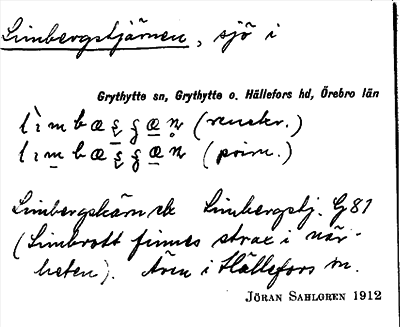 Limbergstjärnen, sjö i
Grythytte sn, Grythytte o. Hällefors hd, Örebro län
(renskr.)
(prim.)
Limbergskärn ek Limbergstj. G81
(Limbrott finnes strax i när-
heten). Även i Hällefors sn.
JÖRAN SAHLGREN 1912